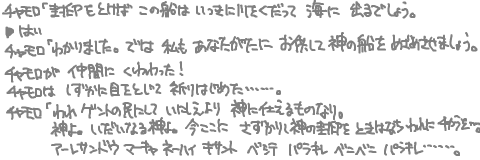 チャモロ「封印をとけば この船は いっきに川をくだって 海に 出るでしょう。
▶はい
チャモロ「わかりました。では 私も あなたがたに お供して神の船を めざめさせましょう。
チャモロが 仲間に くわわった!
チャモロは しずかに目をとじて 祈りはじめた……。
チャモロ「われ ゲントの民にして いにしえより 神に仕えるものなり。
神よ。いだいなる神よ。今ここに さずかりし神の封印を ときはなち われに チカラを…。
アーレサンドウ マーキャ ネーハイ キサント ベシテ パラキレ ベニベニ パラキレ……。